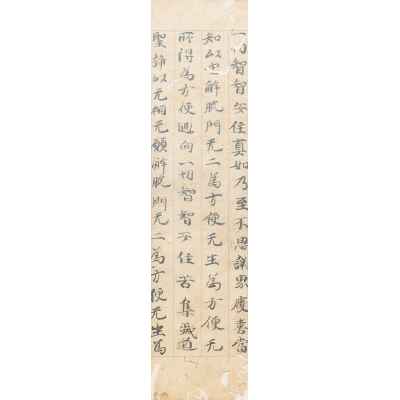 一切智智安住真如乃至不思議界慶喜當
知以空解脫門无二為方便无生為方便无
所得為方便迴向一切智智安住苦集滅道
聖諦以无相无願解脫門无二為方便无生為